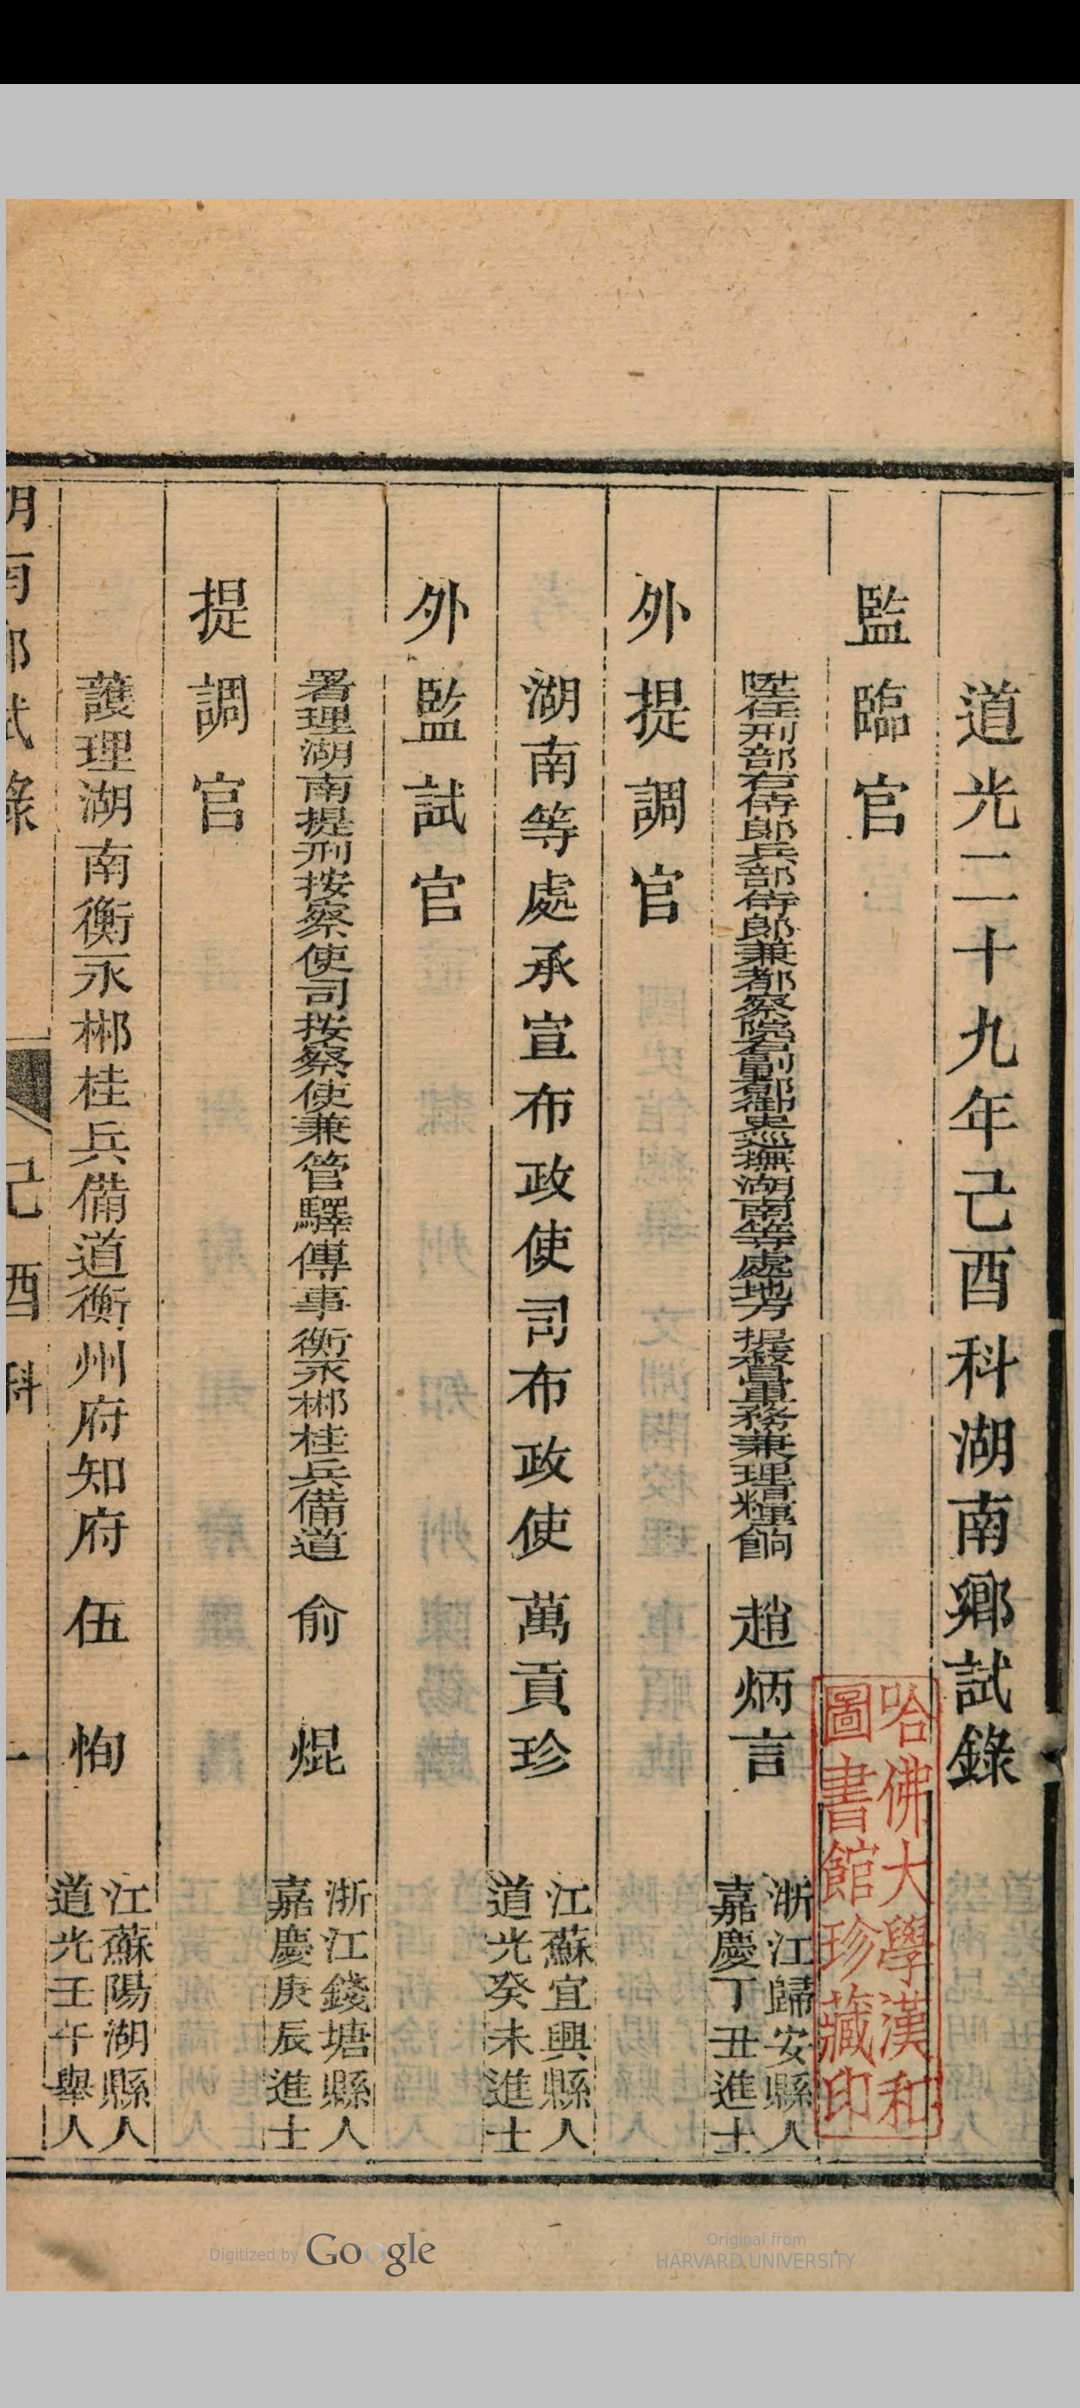 道光二十九年己酉科湖南鄉試錄
監臨官
陞任刑部右侍郎兵部侍郎兼都察院右副都御史巡撫湖南等處地方提督軍務兼理糧餉 趙炳言 浙江歸安縣人
嘉慶丁丑進士
外提調官
湖南等處承宣布政使司布政使 萬貢珍 江蘇宜興縣人
道光癸未進士
外監試官
署理湖南提刑按察使司按察使兼管驛傳事衡永郴桂兵備道 俞焜 浙江錢塘縣人
嘉慶庚辰進士
提調官
護理湖南衡永郴桂兵備道衡州府知府 伍恂 江蘇陽湖縣人
道光壬午舉人
湖南鄉試錄 己酉科 一
哈佛大學漢和
圖書館珍藏印
Digitized by Google
Original from
HARVARD UNIVERSITY